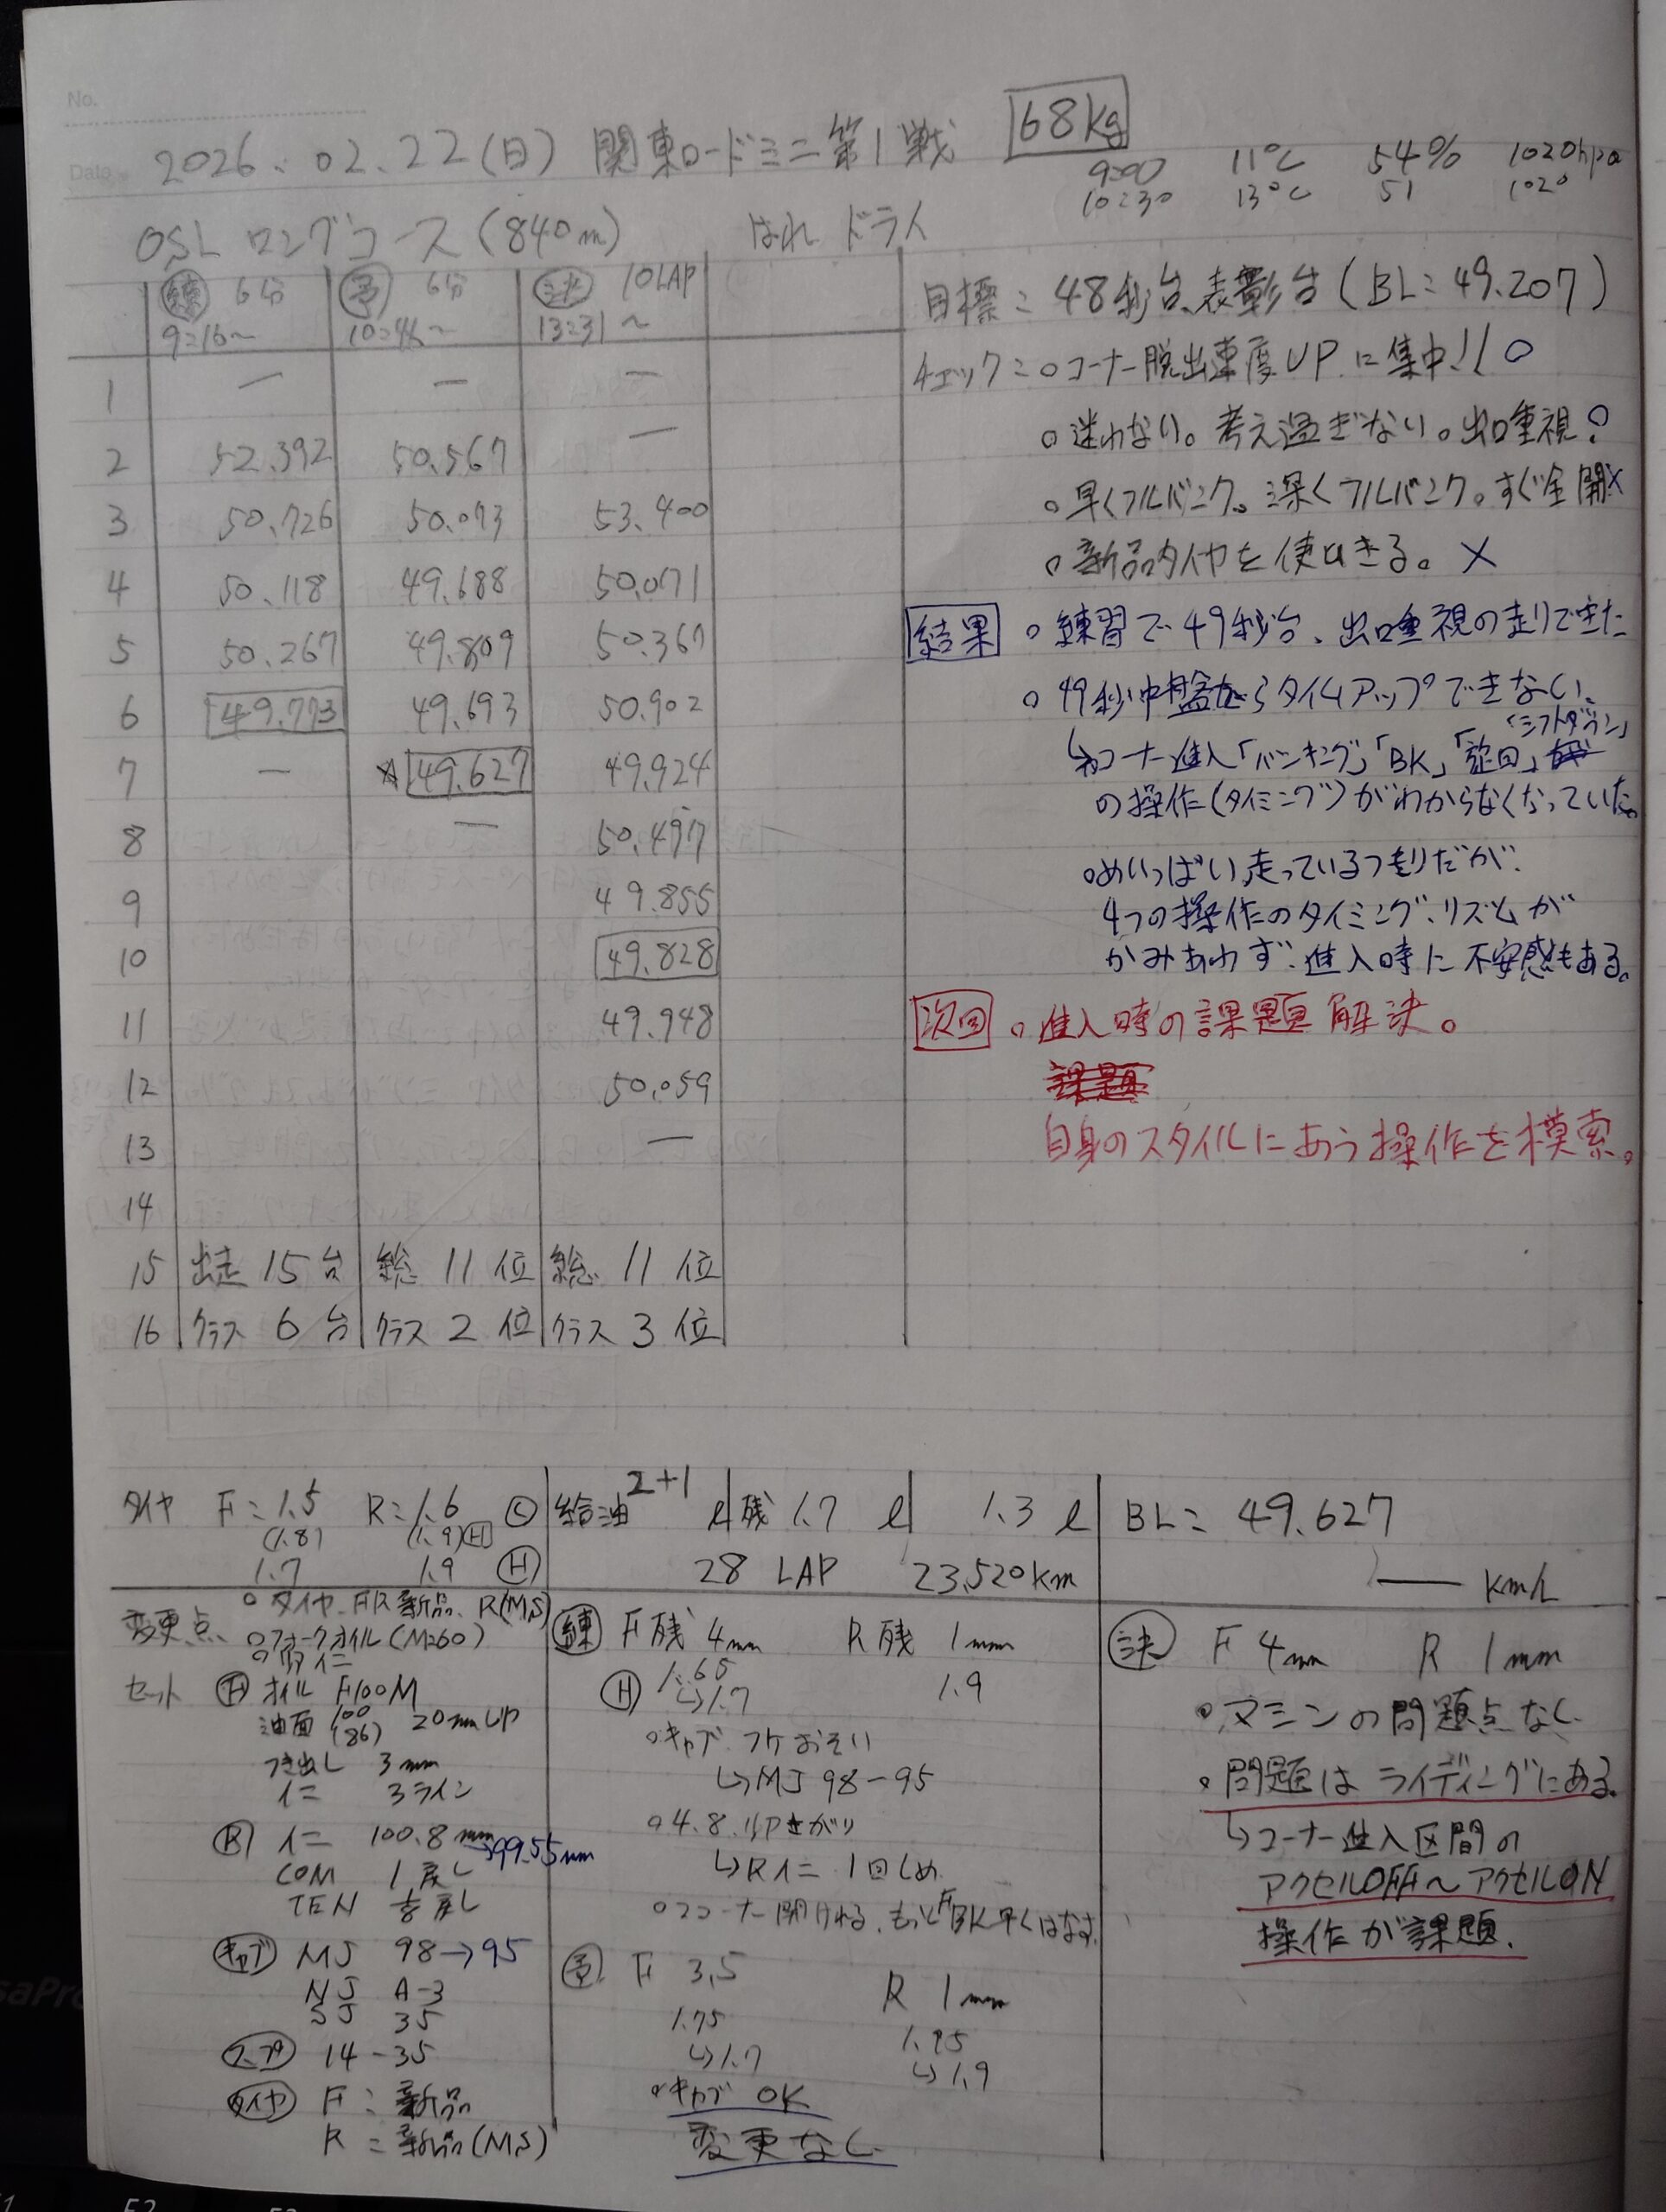 No.
Date
2026.02.22(日) 関東ロードミニ第1戦 68kg
9:00 11℃ 54% 1020hpa
10:30 13℃ 51 1020
OSL ロングコース(840m) はれ ドライ
練 6分 予 6分 決 10LAP
9:16~ 10:46~ 13:31~
1 ー ー ー
2 52.392 50.567 ー
3 50.726 50.073 53.400
4 50.118 49.688 50.071
5 50.267 49.809 50.367
6 49.773 49.693 50.902
7 ー 49.627 49.924
8 ー 50.497
9 49.855
10 49.828
11 49.948
12 50.059
13 ー
14
15 出走 15台 総 11位 総 11位
16 クラス 6台 クラス 2位 クラス 3位
目標:48秒台、表彰台(BL:49.207)
チェック:○コーナー脱出速度UPに集中!! ○
○迷わない。考え過ぎない。出口重視 ○
○早くフルバンク。深くフルバンク。すぐ全開 ×
○新品タイヤを使いきる。 ×
結果 ○練習で49秒台、出口重視の走りできた
○49秒中盤からタイムアップできない。
「シフトダウン」
↳コーナー進入「バンキング」「BK」「旋回」
の操作(タイミング)がわからなくなっていた。
○めいっぱい走っているつもりだが、
4つの操作のタイミング、リズムが
かみあわず、進入時に不安感もある。
次回 ○進入時の課題解決。
自身のスタイルにあう操作を模索。
タイヤ F:1.5 R:1.6 C
(1.8) (1.9)H
1.7 1.9 H
給油 2+1 ℓ 残 1.7 ℓ 1.3 ℓ
28 LAP 23,520km
BL: 49.627
ー km/h
変更点 ○タイヤ FR新品、R(MS)
○フォークオイル(M:60)
セット F オイル F100M
油面 100 (86) 20mmUP
つき出し 3mm
イニ 3ライン
R イニ 100.8mm→99.55mm
COM 1戻し
TEN 戻し
キャブ MJ 98→95
NJ A-3
SJ 35
スプ 14-35
タイヤ F:新品
R:新品(MS)
練 F残 4mm R残 1mm
H 1.65 1.9
↳1.7
○キャブ フケおそい
↳MJ 98-95
○4.8.リアさがり
↳Rイニ 1回しめ
○コーナー開けれる、もっとF BK早くはなす
予 F 3.5 R 1mm
1.75 1.95
↳1.7 ↳1.9
○キャブ OK
変更なし
決 F 4mm R 1mm
○マシンの問題点なし
○問題はライディングにある。
↳コーナー進入区間の
アクセルOFF~アクセルON
操作が課題。
F2